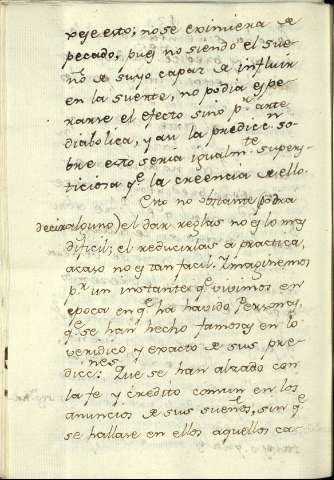 reje esto; no se eximiera de
pecado, pues no siendo el sue-
ño de suyo capaz de influir
en la suerte, no podia espe-
rarse el efecto sino p.r arte
diabolica, y asi la predicc.n so-
bre esto seria igualm.te supers-
ticiosa q.e la creencia de ello.
Eno no obstante (podra
decirse alguno) el dar reglas no es lo mas
dificil; el reducirlas à practica,
acaso no es tan facil. Imaginemos
p.r un instante q.e vivimos en
epoca en q.e ha havido Personas,
q.e se han hecho famosas en lo
veridico y exacto de sus pre-
dicc.nes Que se han alzado con
la fe y credito comun en los
anuncios de sus sueños, sin q.e
se hallase en ellos aquellos ca-